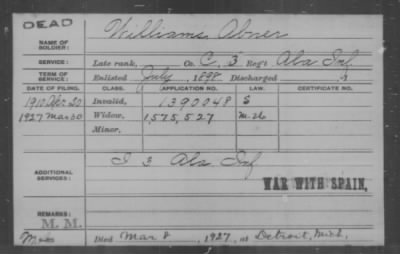 DEAD
NAME OF SOLDIER: Williams, Abner
SERVICE: Late rank, Co. C, 3 Reg't Ala Inf.
TERM OF SERVICE: Enlisted July, 1898. Discharged , 1
DATE OF FILING. CLASS. APPLICATION NO. LAW. CERTIFICATE NO.
1910 Apr 20 Invalid, 1390048 S
1927 Mar 30 Widow, 1,575,527
Minor,
ADDITIONAL SERVICES: I 3 Ala Inf
WAR WITH SPAIN,
REMARKS:
M. M.
Died Mar 8, 1927, at Detroit, Mich.